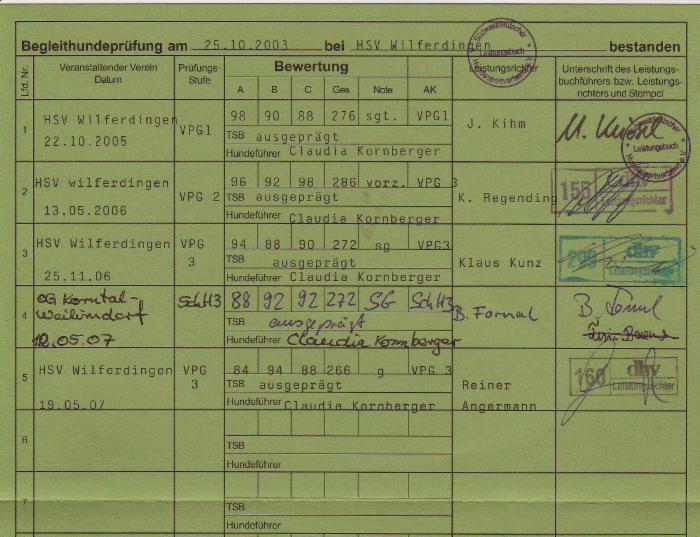 Begleithundeprüfung am 25.10.2003 bei HSV Wilferdingen bestanden
Lfd. Nr.
Veranstaltender Verein
Datum
Prüfungs-
Stufe
Bewertung
A B C Ges Note AK
Leistungsrichter
Unterschrift des Leistungs-
buchführers bzw. Leistungs-
richters und Stempel
Südwestdeutscher Hundesportverband e.V.
Leistungsbuch
1
HSV Wilferdingen
22.10.2005
VPG1
98 90 88 276 sgt. VPG1
TSB ausgeprägt
Hundeführer Claudia Kornberger
J. Kihm
Leistungsbuch
2
HSV wilferdingen
13.05.2006
VPG 2
96 92 98 286 vorz. VPG 3
TSB ausgeprägt
Hundeführer Claudia Kornberger
K. Regending
155 dhv
Leistungsrichter
3
HSV Wilferdingen
25.11.06
VPG
3
94 88 90 272 sg VPG3
TSB ausgeprägt
Hundeführer Claudia Kornberger
Klaus Kunz
dhv
Leistungsrichter
4
OG Korntal-
Weilimdorf
12.05.07
SchH3
88 92 92 272 SG SchH3
TSB ausgeprägt
Hundeführer Claudia Kornberger
B. Fornal
5
HSV Wilferdingen
19.05.07
VPG
3
84 94 88 266 g VPG 3
TSB ausgeprägt
Hundeführer Claudia Kornberger
Reiner
Angermann
160 dhv
Leistungsrichter
6
TSB
Hundeführer
7
TSB
Hundeführer